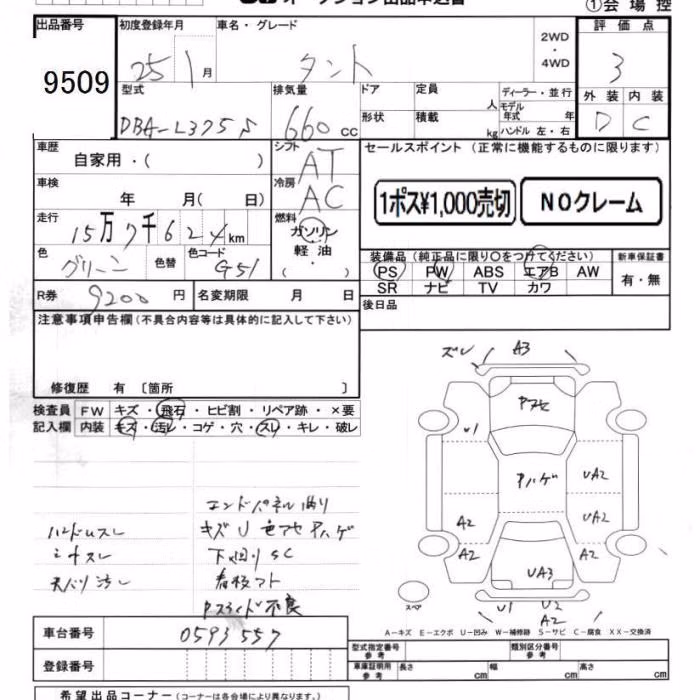 オークション出品申込書
①会場控
出品番号 初度登録年月 車名・グレード 2WD・4WD 評価点
9509 25 1月 タント 3
型式 排気量 ドア 定員 人 ディーラー・並行
モデル年式 年
外装 内装
DBA-L375S 660cc 形状 積載 kg ハンドル 左・右 D C
車歴 自家用・( ) シフト AT
セールスポイント(正常に機能するものに限ります)
車検 年 月( 日) 冷房 AC
1ポス¥1,000売切 NOクレーム
走行 15万7千624km 燃料 ガソリン 軽油・( )
色 グリーン 色替 色コード G51
装備品(純正品に限り○をつけてください) 新車保証書
PS PW ABS エアB AW 有・無
SR ナビ TV カワ
R券 9200円 名変期限 月 日 後日品
注意事項申告欄(不具合内容等は具体的に記入して下さい)
修復歴 有〔箇所 〕
検査員 FW キズ・飛石・ヒビ割・リペア跡・×要
記入欄 内装 キズ・汚レ・コゲ・穴・スレ・キレ・破レ
ズレ A3
アスセ
U1
Aハゲ UA2
UA2
A2
A2 A2
UA3
スペア
U1 U2
A2
エンドパネル曲り
ハンドルスレ キズU 色アセ Aハゲ
シナスレ 下回りSC
天バリ汚レ 看板アト
Pスライド不良
A-キズ E-エクボ U-凹み W-補修跡 S-サビ C-腐食 XX-交換済
車台番号 0593557
型式指定番号 参考 類別区分番号 参考
登録番号 車庫証明用 参考 長さ cm 幅 cm 高さ cm
希望出品コーナー(コーナーは各会場により異なります。)